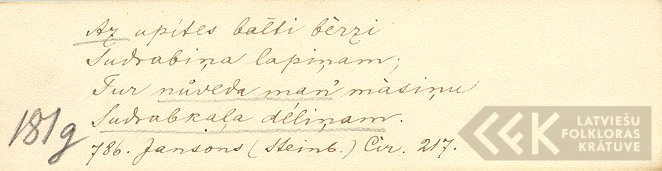 Az upites balti bērzi
Sudrabiņa lapiņam;
Tur nůveda man' māsiņu
Sudrabkaļa dēliņam.
1819
786. Jansons (Steinb.) Cir. 217.
LATVIEŠU
FOLKLORAS
KRĀTUVE